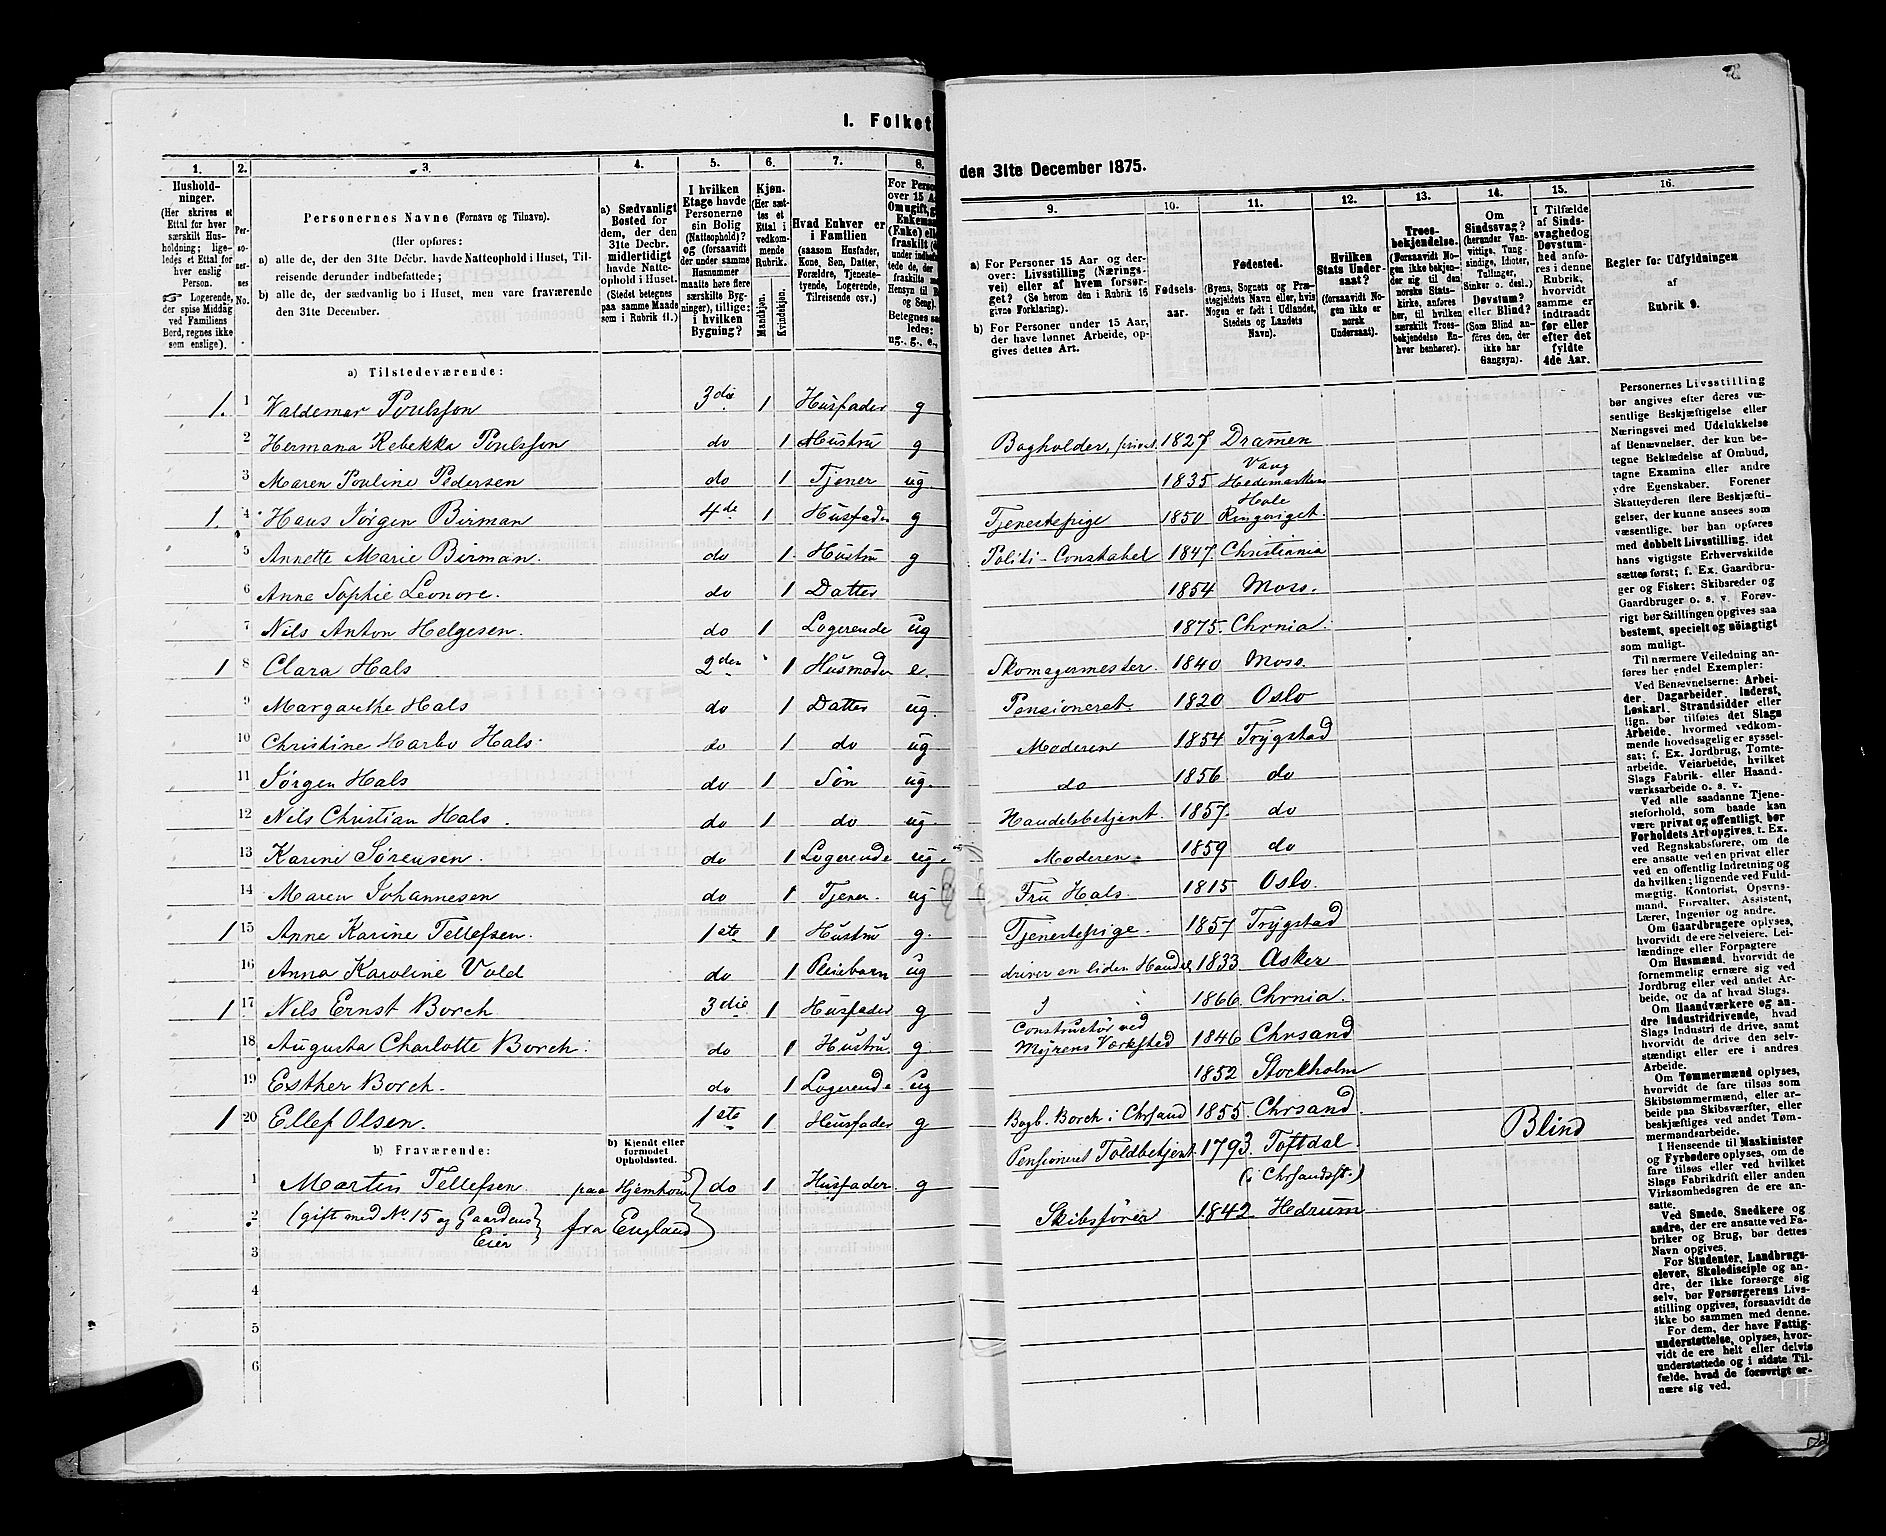 I. Folket
1. 2. 3. 4. 5. 6. 7. 8.
Hushold-
ninger.
(Her skrives et
Ettal for hver
særskilt Hus-
holdning; lige-
ledes et Ettal for
hver enslig
Person.
☞ Logerende,
der spise Middag
ved Familiens
Bord, regnes ikke
som enslige).
Per-
so-
ner-
nes
No.
Personernes Navne (Fornavn og Tilnavn).
(Her opføres:
a) alle de, der den 31te Decbr. havde Natteophold i Huset, Til-
reisende derunder indbefattede;
b) alle de, der sædvanlig bo i Huset, men vare fraværende
den 31te December.
a) Sædvanligt
Bosted for
dem, der den
31te Decbr.
midlertidigt
havde Natte-
ophold i Huset.
(Stedet betegnes
paa samme Maade
som i Rubrik 11.)
I hvilken
Etage havde
Personerne
sin Bolig
(Natteophold)?
og (forsaavidt
der under samme
Husnummer
maatte høre flere
særskilte Byg-
ninger), tillige:
i hvilken
Bygning?
Kjøn.
(Her sæt-
tes et
Ettal i
vedkom-
mende
Rubrik.
Mandkjøn.
Kvindekjøn.
Hvad Enhver er
i Familien
(saasom Husfader,
Kone, Søn, Datter,
Forældre, Tjeneste-
tyende, Logerende,
Tilreisende osv.)
a) Tilstedeværende:
1. 1 Waldemar Poulsson 3die 1 Husfader g
2 Hermana Rebekka Poulsson do 1 Hustru g
3 Maren Pouline Pedersen do 1 Tjener ug
1. 4 Hans Jørgen Birman 4de 1 Husfader g
5 Annette Marie Birman. do 1 Hustru g
6 Anne Sophie Leonore. do 1 Datter
7 Nils Anton Helgesen. do 1 Logerende ug
1 8 Clara Hals 2den 1 Husmoder e.
9 Margarethe Hals do 1 Datter ug.
10 Christine Harbo Hals. do 1 do ug
11 Jørgen Hals do 1 Søn ug.
12 Nils Christian Hals. do 1 do ug.
13 Karine Sørensen. do 1 Logerende ug.
14 Maren Johannesen do 1 Tjener. ug
1 15 Anne Karine Tellefsen. 1ste 1 Hustru g.
16 Anna Karoline Vold do 1 Pleiebarn ug
1 17 Nils Ernst Borch 3die 1 Husfader g
18 Augusta Charlotte Borch. do 1 Hustru. g.
19 Esther Borch. do 1 Logerende ug
1 20 Ellef Olsen. 1ste 1 Husfader g
b) Fraværende:
b) Kjendt eller
formodet
Opholdssted.
1 Martin Tellefsen. paa Hjemkomst do 1 Husfader. g
2 (gift med No. 15 og Gaardens
Eier fra England
3
4
5
6
den 31te December 1875.
9. 10. 11. 12. 13. 14. 15. 16.
a) For Personer 15 Aar og der-
over: Livsstilling (Nærings-
vei) eller af hvem forsør-
get? (Se herom den i Rubrik 16
givne Forklaring).
b) For Personer under 15 Aar,
der have lønnet Arbeide, op-
gives dettes Art.
Fødsels-
aar.
Fødested.
(Byens, Sognets og Præ-
stegjeldets Navn eller, hvis
Nogen er født i Udlandet,
Stedets og Landets
Navn).
Hvilken
Stats Under-
saat?
(forsaavidt No-
gen ikke er
norsk
Undersaat).
Troes-
bekjendelse.
(Forsaavidt No-
gen ikke bekjen-
der sig til den
norske Stats-
kirke, anføres
her, til hvilken
særskilt Troes-
bekjendelse En-
hver henhører).
Om
Sindssvag?
(herunder Van-
vittige, Tung-
sindige, Idioter,
Tullinger,
Sinker o. desl.)
Døvstum?
eller Blind?
(Som Blind an-
føres den, der
ikke har
Gangsyn).
I Tilfælde
af Sinds-
svaghed og
Døvstum-
hed anfø-
res i denne
Rubrik,
hvorvidt
samme er
indtraadt
før eller
efter det
fyldte
4de Aar.
Regler for Udfyldningen
af
Rubrik 9.
Bogholder, privat 1827 Dramen
1835 Vang
Hedemarken
Tjenestepige 1850 Hole
Ringeriget.
Politi-Constabel 1847. Christiania
1854 Moss.
1875. Chrnia.
Skomagermester. 1840 Moss.
Pensioneret. 1820 Oslo
Moderen 1854 Trygstad
do 1856 do
Handelsbetjent. 1857. do
Moderen. 1859 do
Fru Hals. 1815 Oslo.
Tjenestepige. 1857 Trygstad
driver en liden Handel 1833 Asker
1866. Chrnia.
Constructør ved
Myrens Værksted 1846 Chrsand
1852 Stockholm
Bogh. Borch i Chrsand 1855 Chrsand
Pensioneret Toldbetjent. 1793. Toftdal Blind
(i Chrsandsst.)
Skibsfører 1842 Hedrum
Personernes Livsstilling
bør angives efter deres væ-
sentlige Beskjæftigelse eller
Næringsvei med Udelukkelse
af Benævnelser, der kun be-
tegne Beklædelse af Ombud,
tagne Examina eller andre
ydre Egenskaber. Forener
Skatteyderen flere Beskjæfti-
gelser, der kunne ansees som
væsentlige, bør han opføres
med dobbelt Livsstilling, idet
hans vigtigste Erhvervskilde
sættes først; f. Ex. Gaardbru-
ger og Fisker; Skibsreder og
Gaardbruger o. s. v. Forøv-
rigt bør Stillingen opgives saa
bestemt, specielt og nøiagtigt
som muligt.
Til nærmere Veiledning an-
føres her endel Exempler:
Ved Benævnelserne: Arbei-
der, Dagarbeider, Inderst,
Løskarl, Strandsidder eller
lign. bør tilføies det Slags
Arbeide, hvormed vedkom-
mende hovedsagelig er syssel-
sat; f. Ex. Jordbrug, Tomte-
arbeide, Veiarbeide, hvilket
Slags Fabrik- eller Haand-
værksarbeide o. s. v.
Ved alle saadanne Tjene-
steforhold, som baade kan
være privat og offentligt, bør
Forholdets Art opgives, f. Ex.
ved Regnskabsførere, om de
ere ansatte ved en privat eller
ved en offentlig Indretning og
da hvilken; lignende ved Fuld-
mægtig, Kontorist, Opsyns-
mand, Forvalter, Assistent,
Lærer, Ingeniør og andre.
Om Gaardbrugere oplyses,
hvorvidt de ere Selveiere, Lei-
lændinge eller Forpagtere
Om Husmænd, hvorvidt de
fornemmelig ernære sig ved
Jordbrug eller ved andet Ar-
beide, og da af hvad Slags.
Om Haandværkere og an-
dre Industridrivende, hvad
Slags Industri de drive, samt
hvorvidt de drive den selv-
stændigt eller ere i andres
Arbeide.
Om Tømmermænd oplyses,
hvorvidt de fare tilsøs som
Skibstømmermænd, eller ar-
beide paa Skibsværfter, eller
beskjæftiges ved andet Tøm-
mermandsarbeide.
I Henseende til Maskinister
og Fyrbødere oplyses, om de
fare tilsøs eller ved hvilket
Slags Fabrikdrift eller anden
Virksomhedsgren de ere an-
satte.
Ved Smede, Snedkere og
andre, der ere ansatte ved Fa-
briker og Brug, bør dettes
Navn opgives.
For Studenter, Landbrugs-
elever, Skoledisciple og an-
dre, der ikke forsørge sig
selv, bør Forsørgerens Livs-
stilling opgives, forsaavidt de
ikke bo sammen med denne.
For dem, der have Fattig-
understøttelse, oplyses, hvor-
vidt de ere helt eller delvis
understøttede og i sidste Til-
fælde, hvad de forøvrigt er-
nære sig ved.